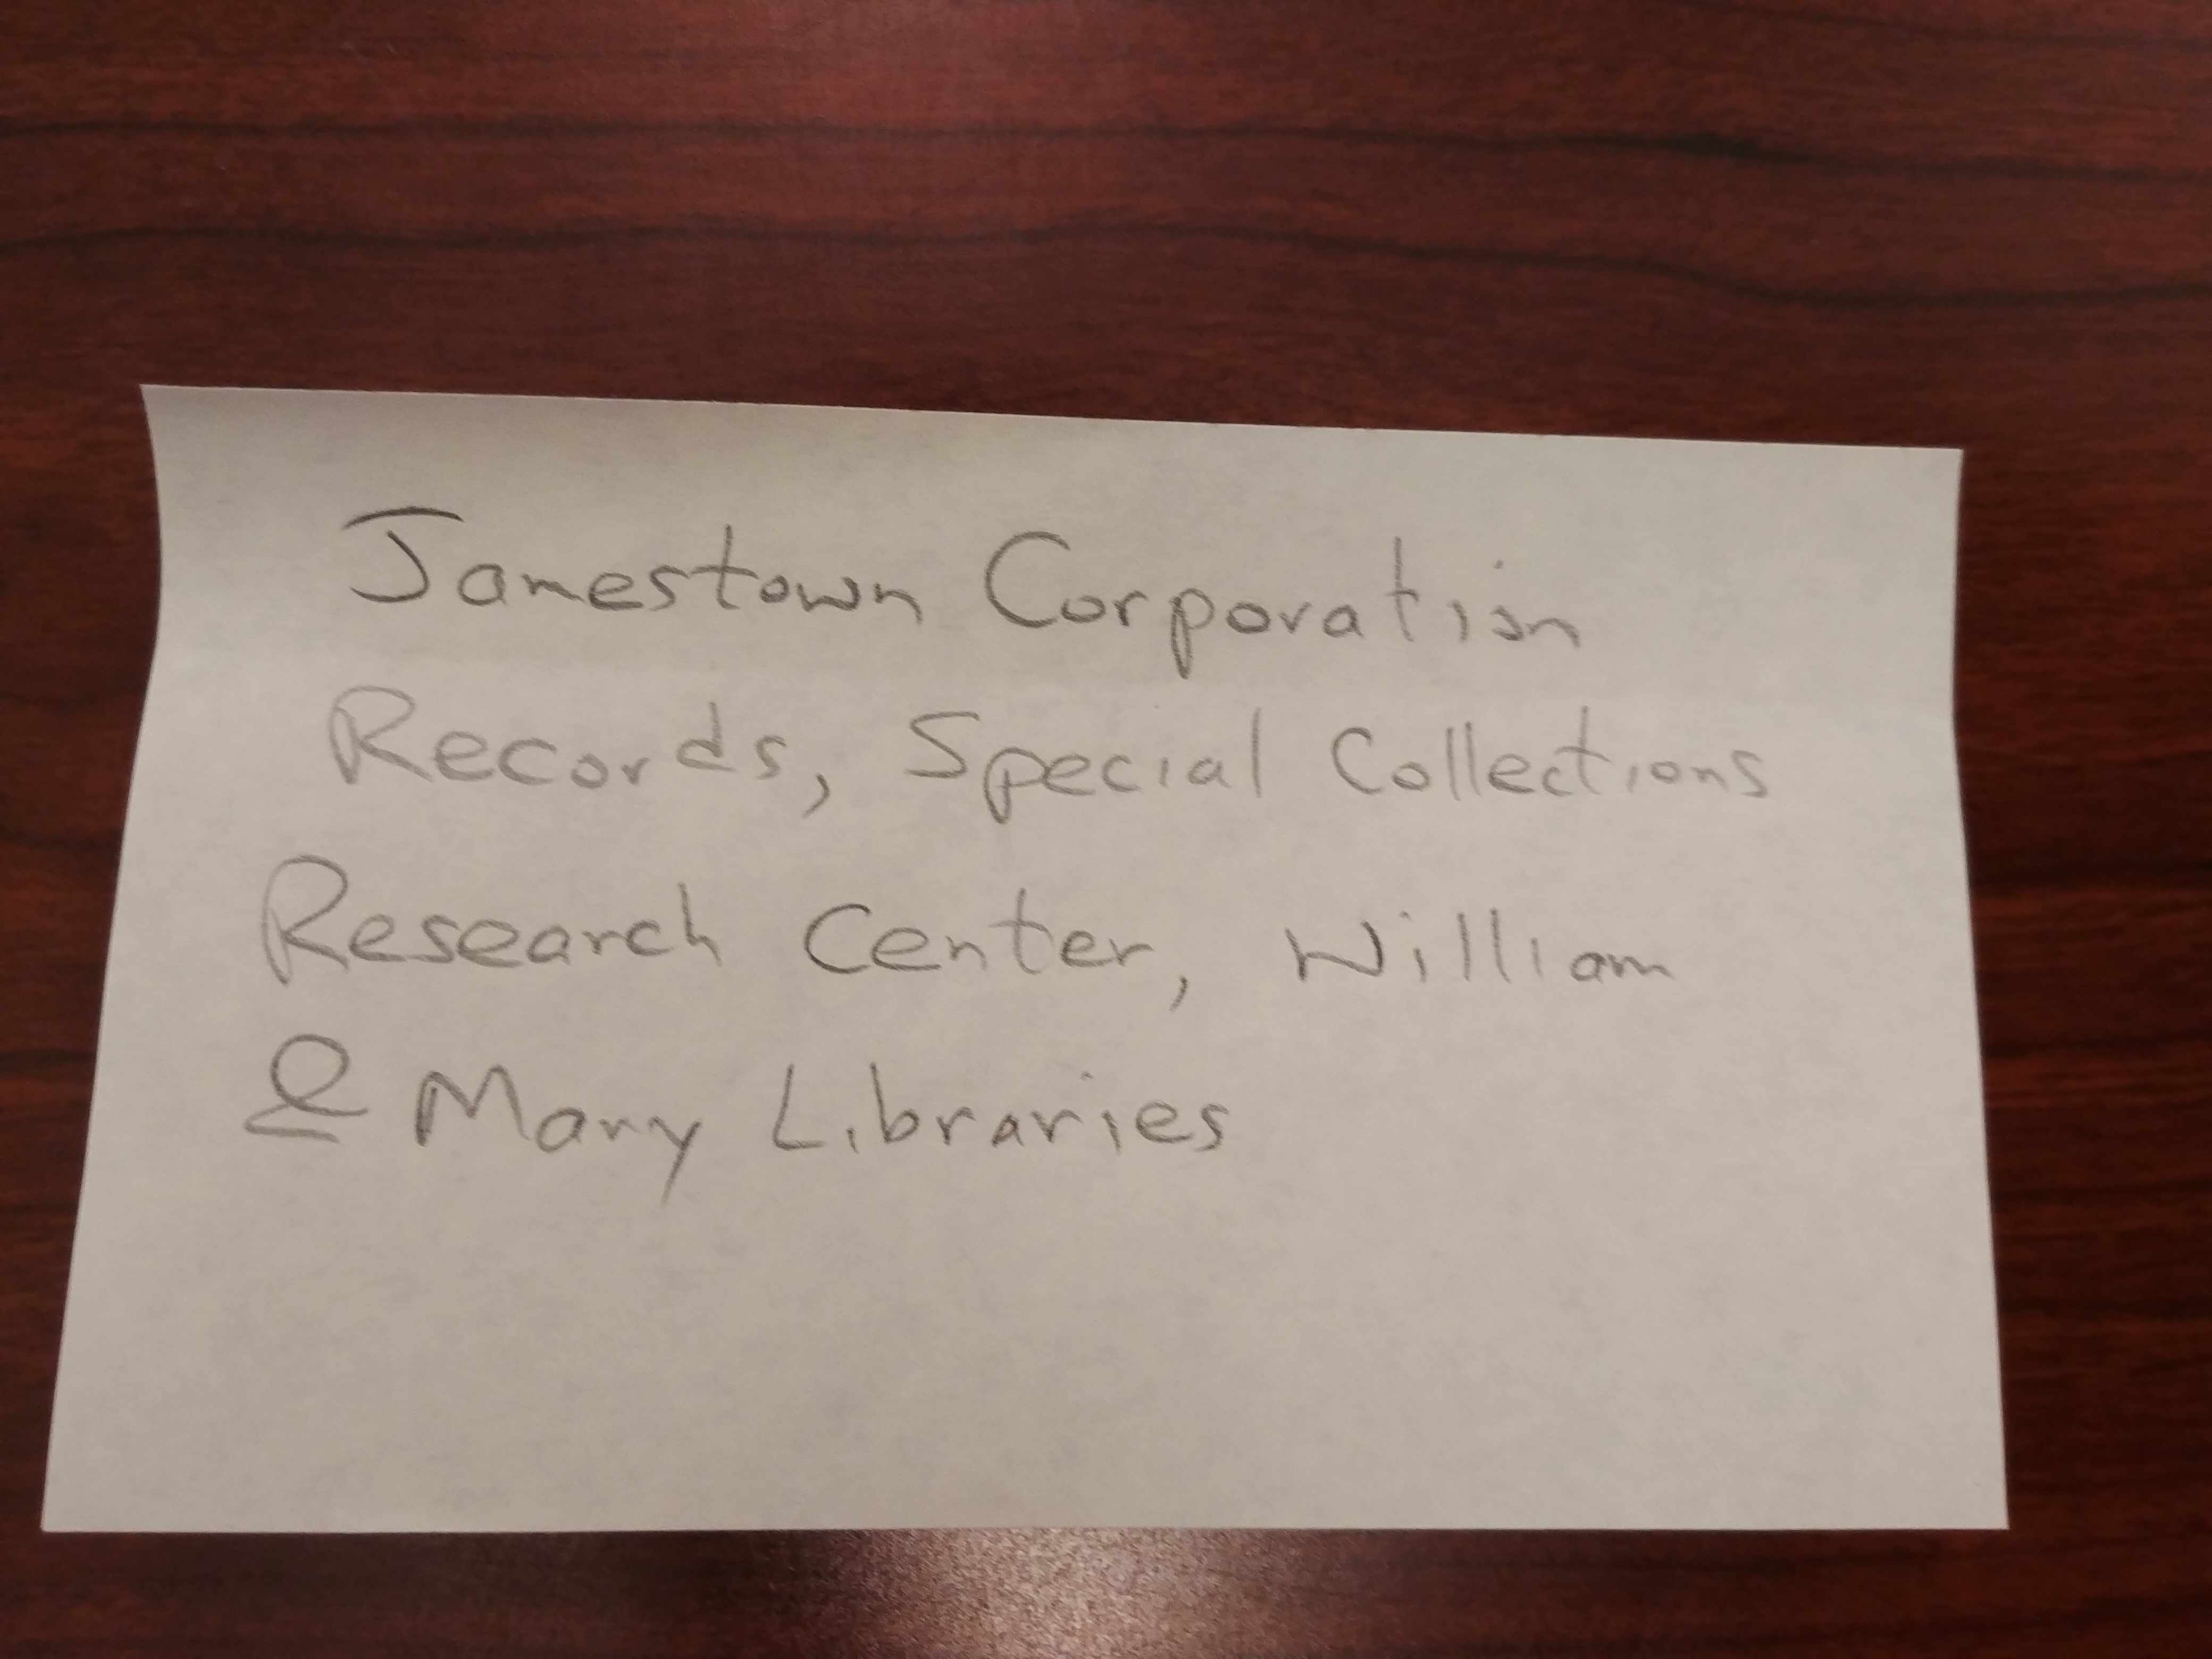 Jamestown Corporation
Records, Special Collections
Research Center, William
& Mary Libraries